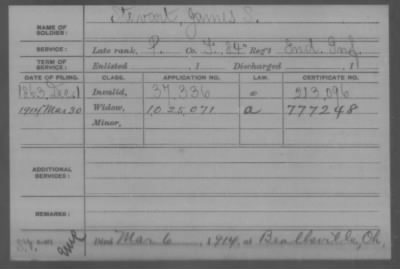 NAME OF SOLDIER: Stewart, James S.
SERVICE: Late rank, P. Co. F, 84" Reg't Ind. Inf.
TERM OF SERVICE: Enlisted , 1 Discharged , 1
DATE OF FILING. CLASS. APPLICATION NO. LAW. CERTIFICATE NO.
1863 Dec. 1 Invalid, 37,336 213,096
1914 Mar 30 Widow, 1,025,071 a 777248
Minor,
ADDITIONAL SERVICES:
REMARKS:
Died Mar 6, 1914, at Beallsville, Oh.